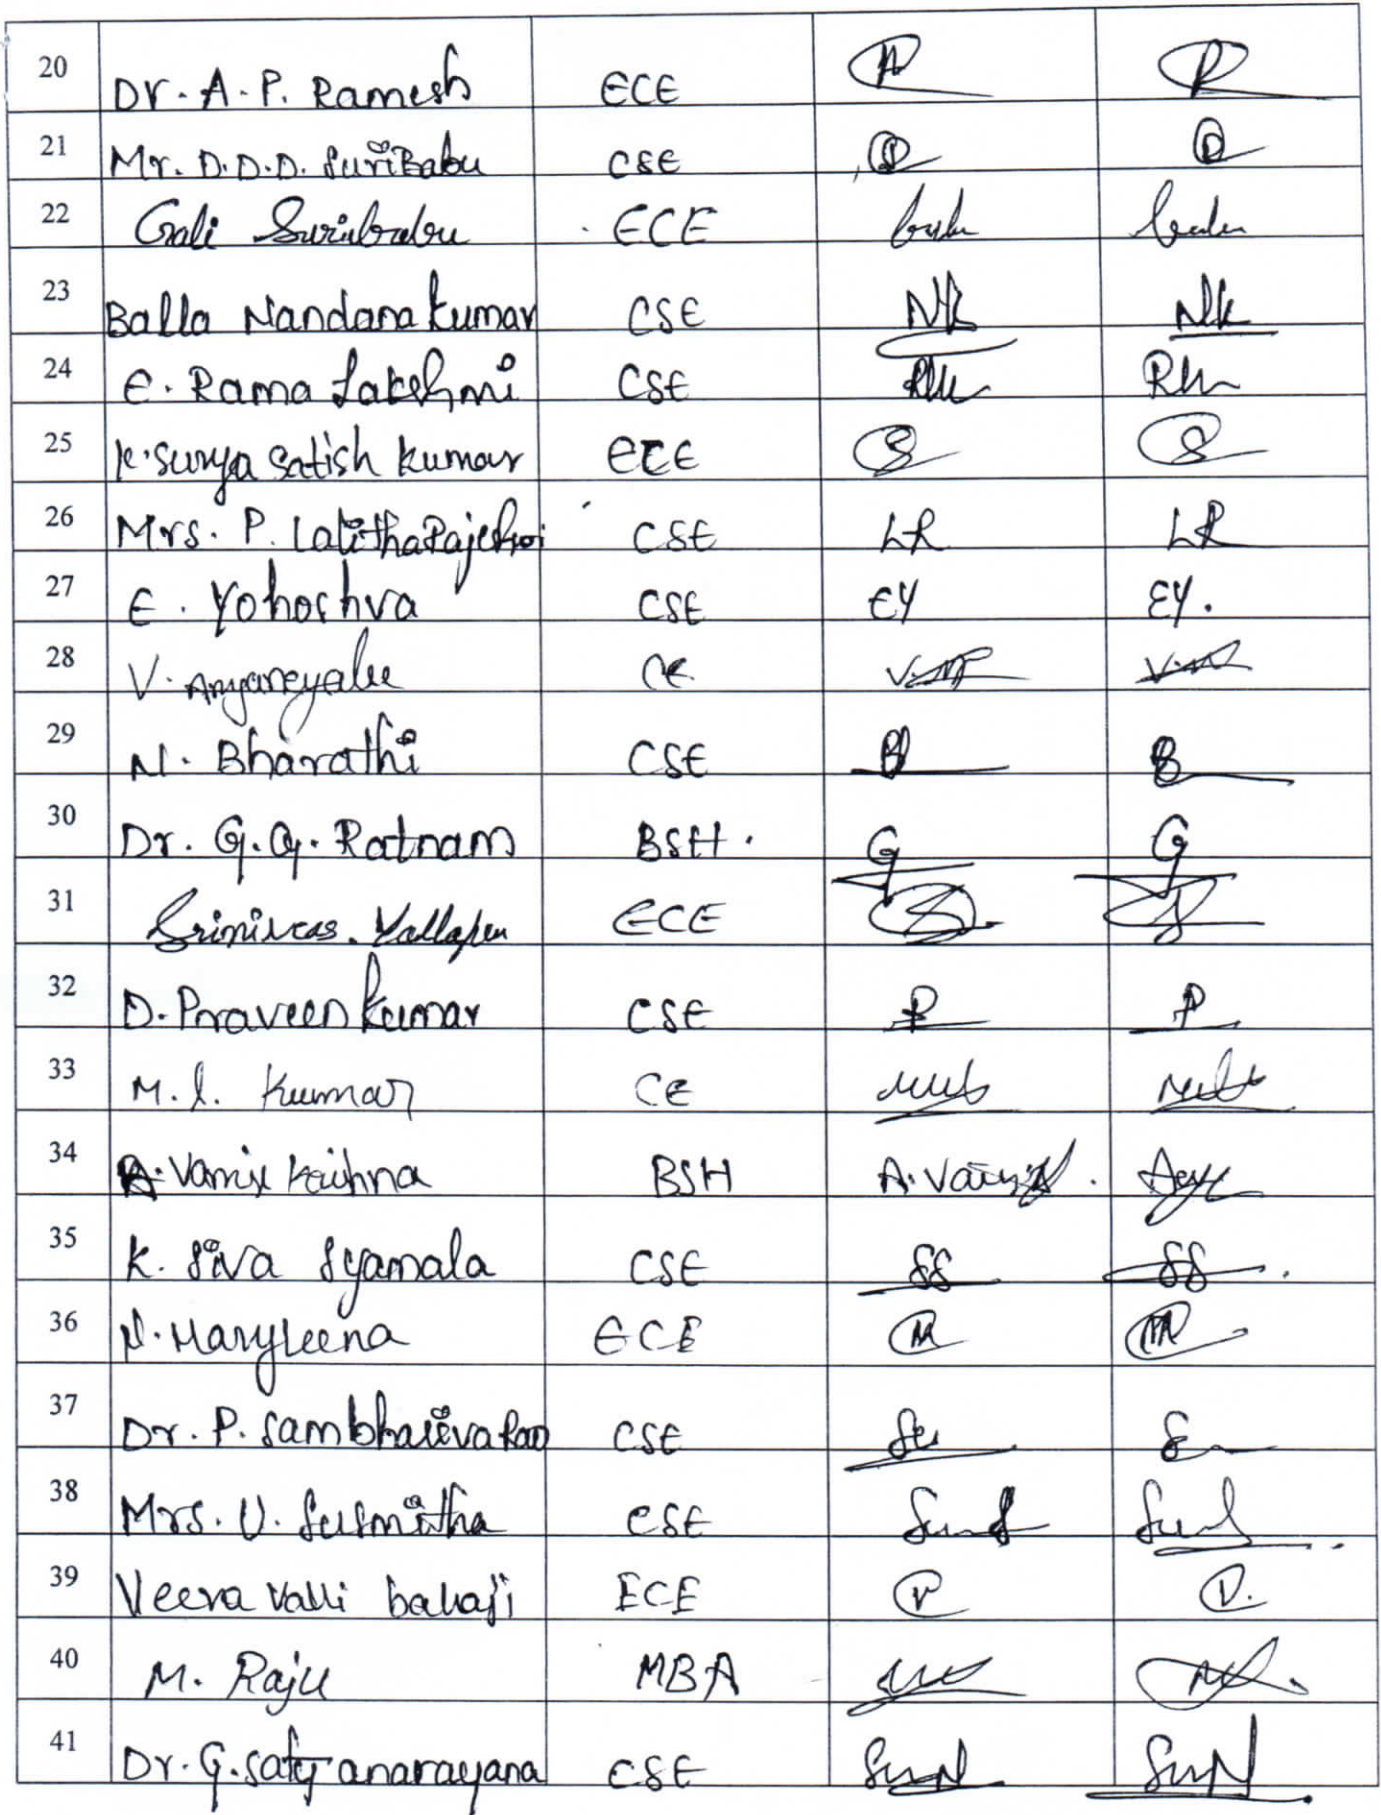 20 Dr. A. P. Ramesh ECE
21 Mr. D.D.D. SuriBabu CSE
22 Gali Suribabu ECE
23 Balla Nandana Kumar CSE NK NK
24 E. Rama Lakshmi CSE
25 K. Surya Satish Kumar ECE S S
26 Mrs. P. Lalitha Rajeswari CSE LR LR
27 E. Yohoshva CSE EY EY.
28 V. Anjaneyalu CE
29 N. Bharathi CSE B B
30 Dr. G. G. Ratnam BSH. G G
31 Srinivas. Yallapu ECE
32 D. Praveen Kumar CSE P P
33 M. l. Kumar CE
34 A. Vamsi Krishna BSH
35 K. Siva Syamala CSE SS SS
36 N. Maryleena ECE M M
37 Dr. P. Sambhasiva Rao CSE
38 Mrs. U. Susmitha CSE
39 Veera Valli balaji ECE V V.
40 M. Raju MBA
41 Dr. G. Satyanarayana CSE